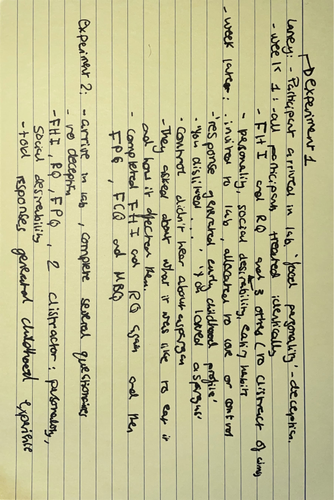 Experiment 1
Laney: - Participant arrived in lab, 'food personality' - deception.
- week 1: - all participants treated identically
- FHI and RQ and 3 other (to distract of
- personality, social desirability, eating habits
- week later: invited to lab, allocated to love or control
- 'response generated early childhood profile'
- 'You disliked ....', '& loved asparagus'
- Control didn't hear about asparagus
- They asked about what it was like to eat it
and how it affected them.
- completed FHI and RQ again and then
FPQ, FCQ and MBQ
Experiment 2: - arrive in lab, complete several questionnaires
- no deception
- FHI, RQ, FPQ, 2 distractor: personality,
social desirability
- told responses generated childhood experience